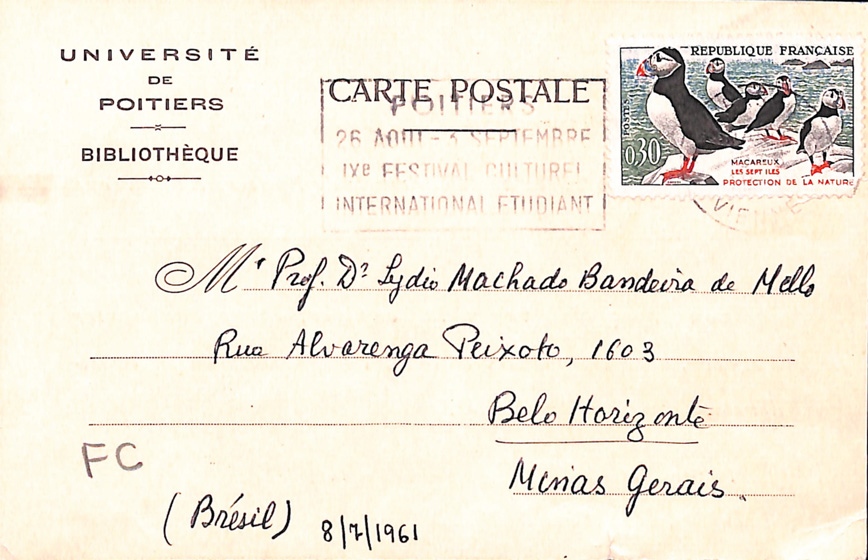 UNIVERSITÉ
DE
POITIERS
BIBLIOTHÈQUE
CARTE POSTALE
POITIERS
26 AOUT - 3 SEPTEMBRE
IXe FESTIVAL CULTUREL
INTERNATIONAL ETUDIANT
REPUBLIQUE FRANÇAISE
POSTES
0,30
MACAREUX
LES SEPT ILES
PROTECTION DE LA NATURE
VIENNE
Mr Prof. Dr Lydio Machado Bandeira de Mello
Rua Alvarenga Peixoto, 1603
Belo Horizonte
Minas Gerais.
FC
(Brésil) 8/7/1961